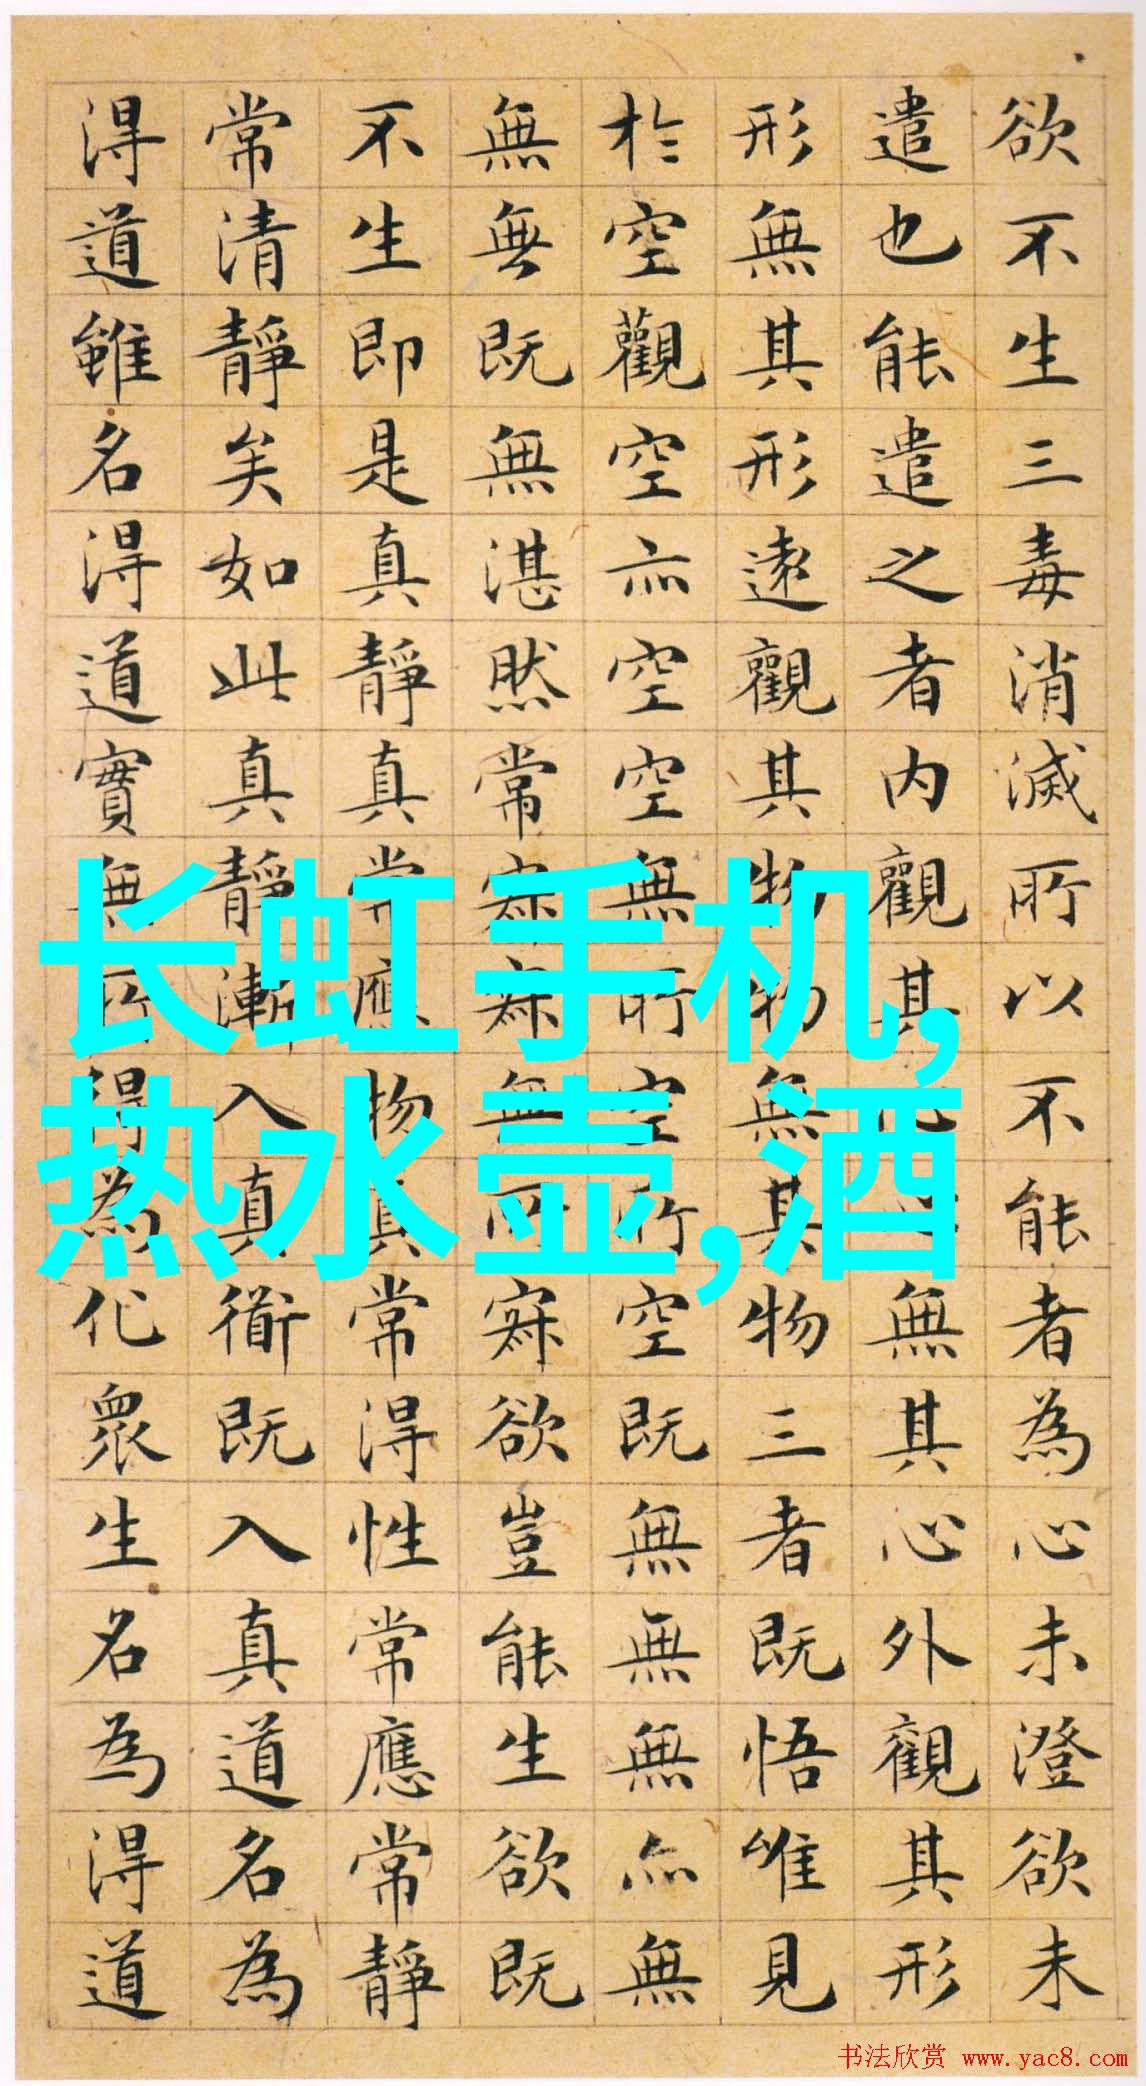 欲不生三毒消滅所以不能者為心未澄欲未
遣也能遣之者内觀其無其心外觀其形
形無其形遠觀其物物無其物三者既悟唯見
於空觀空亦空空無所空所空既無無無亦無
無無既無湛然常寂寂無所寂欲豈能生欲既
不生即是真靜真常應物真常得性常應常靜
常清靜矣如此真靜漸入真衜既入真道名為
得道雖名得道實無所得為化眾生名為得道
长虹手机,
热水壶,酒
书法欣赏 www.yac8.com